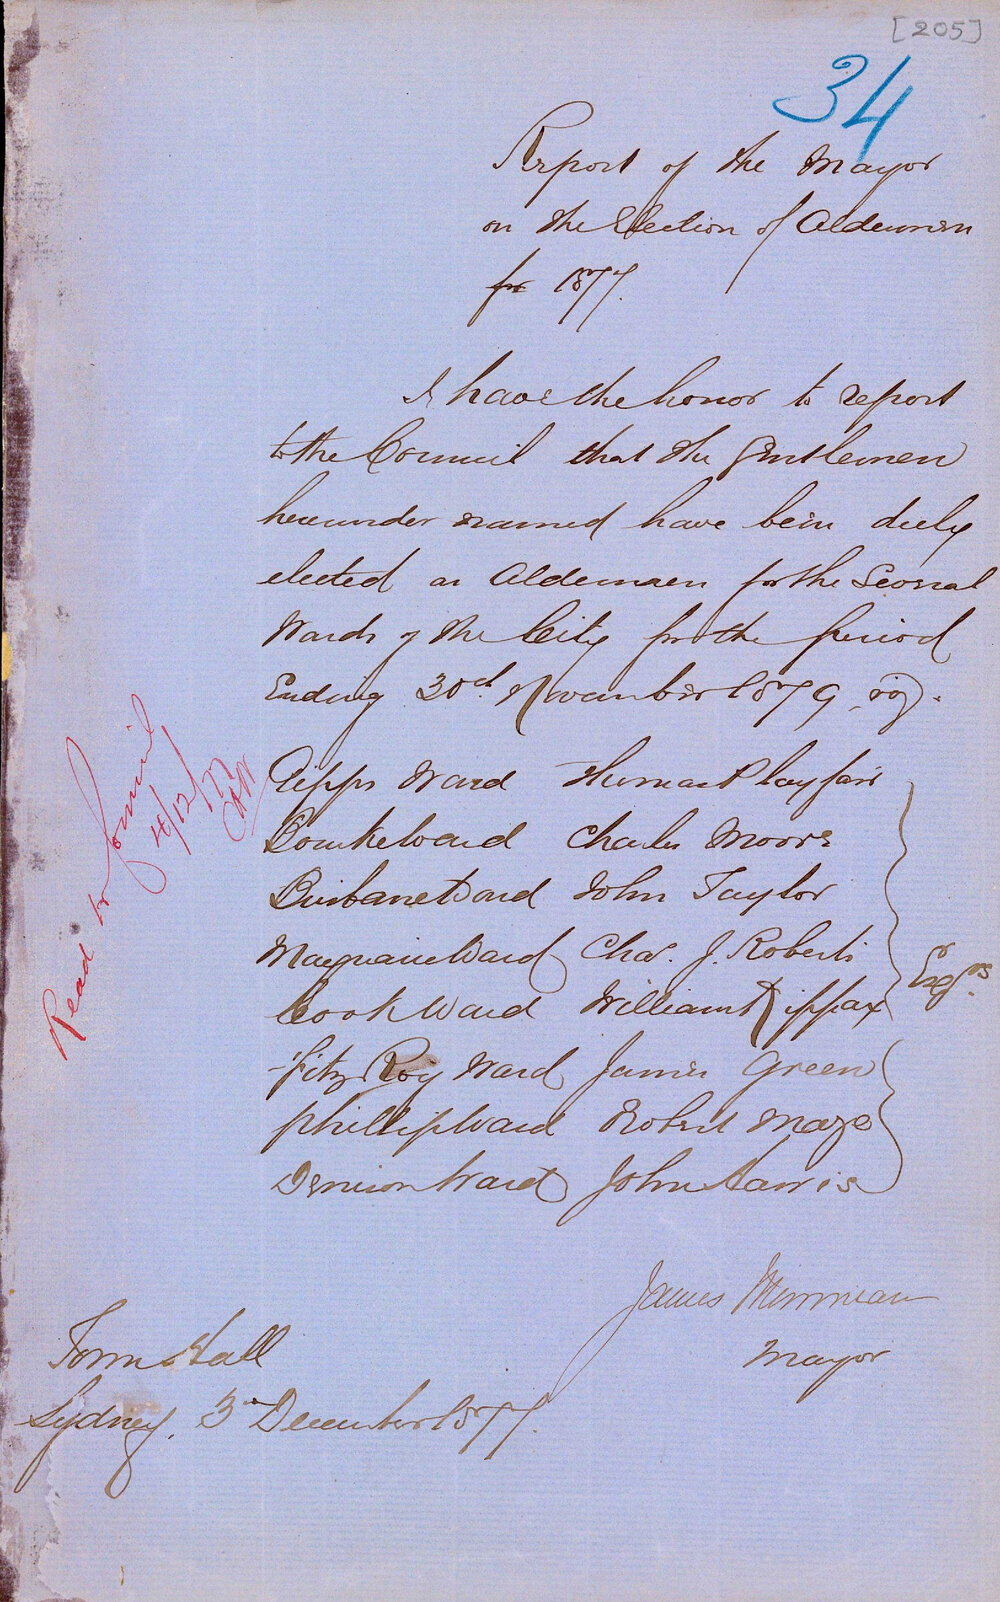 [205]
34
Report of the Mayor
on the Election of Aldermen
for 1877.
I have the honor to report
to the Council that the Gentlemen
hereunder named have been duly
elected as Aldermen for the Several
Wards of the City for the period
Ending 30th November 1879, viz.
Gipps Ward Thomas Playfair
Bourke Ward Charles Moore
Brisbane Ward John Taylor
Macquarie Ward Chas. J. Roberts
Cook Ward William Kippax
Fitz Roy Ward James Green
Phillip Ward Robert Maze
Denison Ward John Harris
Esqrs.
Read to Council
4/12/77
James Merriman
Mayor
Town Hall
Sydney. 3rd December 1877.